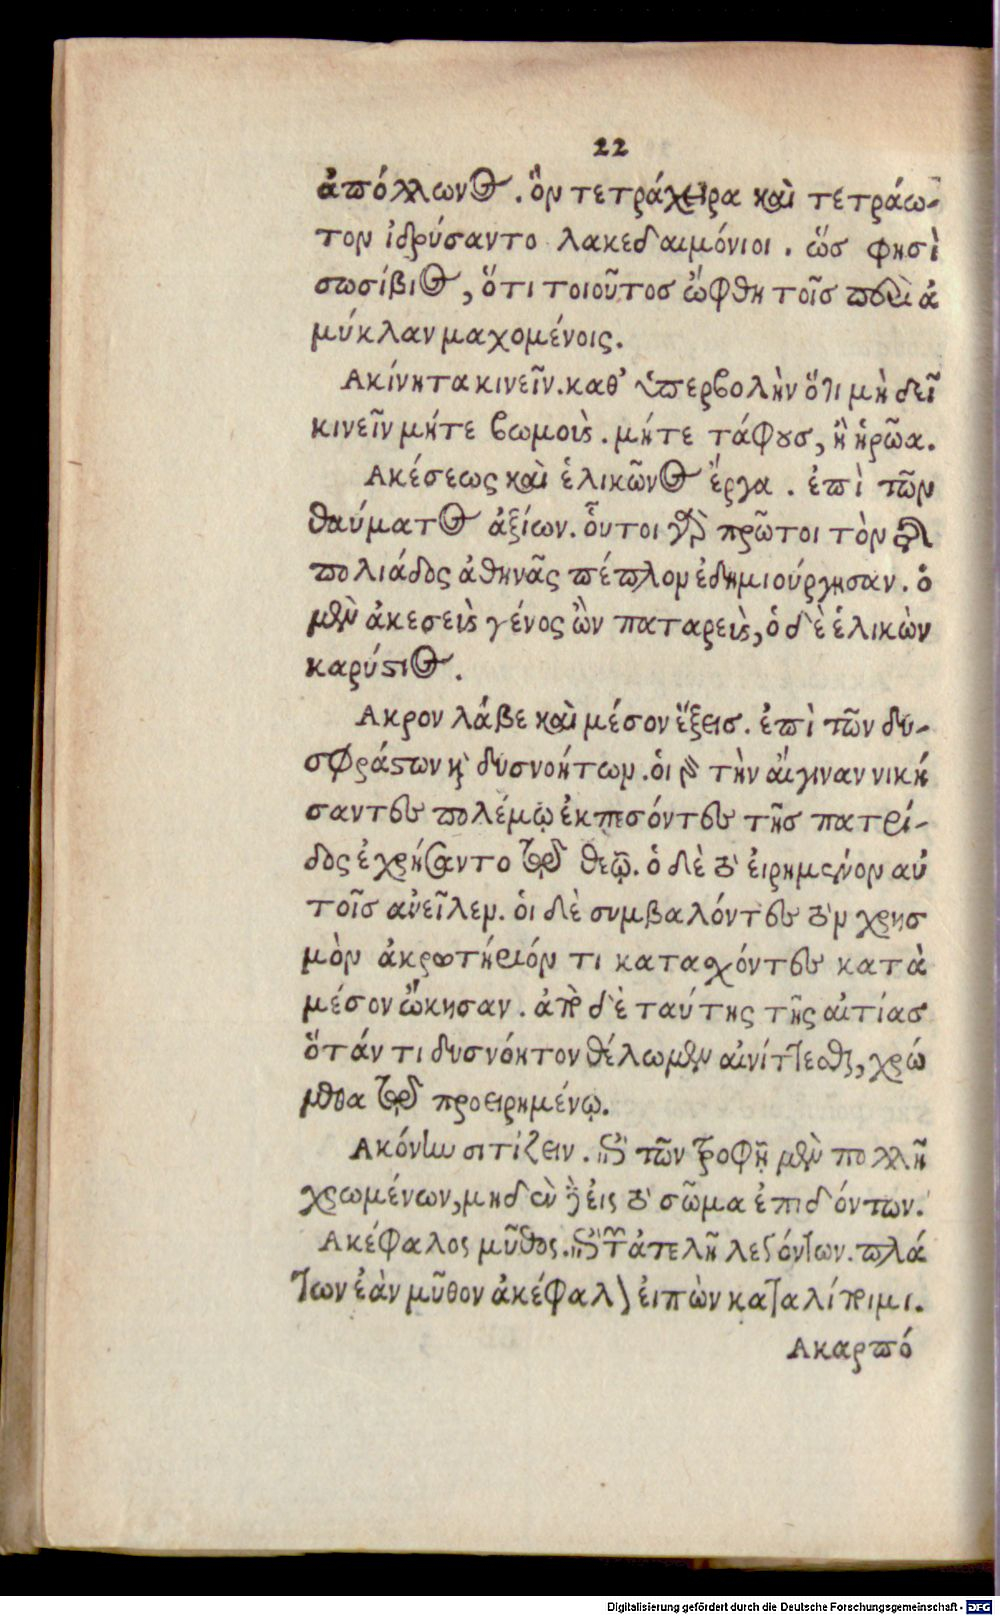 22
ἀπόλλωνος. ὃν τετράχειρα καὶ τετράω-
τον ἱδρύσαντο λακεδαιμόνιοι. ὥσ φησὶ
σωσίβιος, ὅτι τοιοῦτοσ ὤφθη τοῖσ περὶ ἀ
μύκλαν μαχομένοις.
Ακίνητα κινεῖν. καθ' ὑπερβολὴν ὅτι μὴ δεῖ
κινεῖν μήτε βωμοὺς. μήτε τάφουσ, ἢ ἡρῶα.
Ακέσεως καὶ ἑλικῶνος ἔργα. ἐπὶ τῶν
θαύματος ἀξίων. οὗτοι γὰρ πρῶτοι τὸν τῆς
πολιάδος ἀθηνᾶς πέπλον ἐδημιούργησαν. ὁ
μὲν ἀκεσεὺς γένος ὢν παταρεὺς, ὁ δὲ ἑλικὼν
καρύστιος.
Ακρον λάβε καὶ μέσον ἕξεισ. ἐπὶ τῶν δυ-
σφράστων καὶ δυσνοήτων. οἱ γὰρ τὴν αἴγιναν νική
σαντες πολέμῳ ἐκπεσόντες τῆσ πατρί-
δος ἐχρήσαντο τῷ θεῷ. ὁ δὲ τὸ εἰρημένον αὐ
τοῖσ ἀνεῖλεν. οἱ δὲ συμβαλόντες τὸν χρησ
μὸν ἀκρωτήριόν τι κατασχόντες κατὰ
μέσον ᾤκησαν. ἀπὸ δὲ ταύτης τῆς αἰτίασ
ὅτάν τι δυσνόητον θέλωμεν αἰνίττεσθαι, χρώ
μεθα τῷ προειρημένῳ.
Ακόντιω σιτίζειν. ἐπὶ τῶν τροφῇ μὲν πολλῇ
χρωμένων, μηδὲν δὲ εἰς τὸ σῶμα ἐπιδόντων.
Ακέφαλος μῦθος. ἐπὶ τῶν ἀτελῆ λεγόντων. πλά
των ἐὰν μῦθον ἀκέφαλον εἰπὼν καταλίποιμι.
Ακαρπό
Digitalisierung gefördert durch die Deutsche Forschungsgemeinschaft - DFG